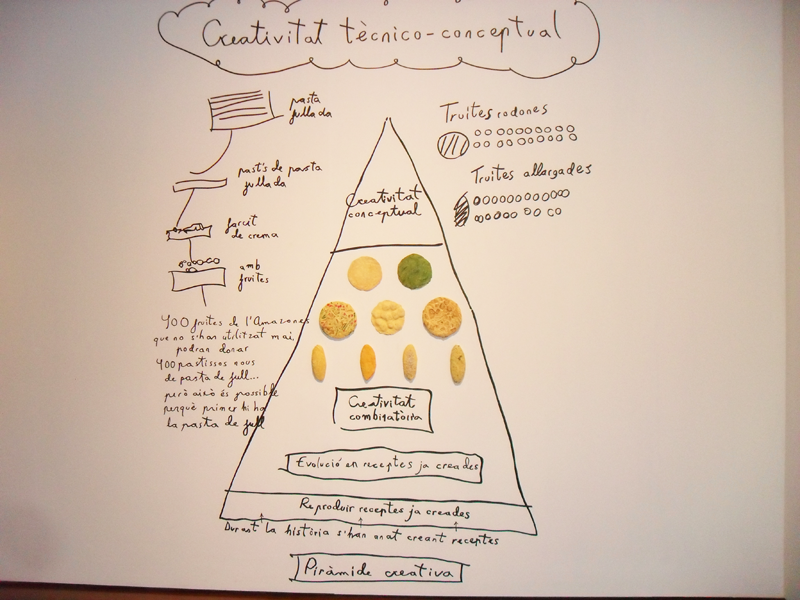 Creativitat tècnico-conceptual
pasta
fullada
pasta de pasta
fullada
farcit
de crema
amb
fruites
400 fruites de l'Amazones
que no s'han utilitzat mai,
podran donar
400 pastissos nous
de pasta de full...
però això és possible
perquè primer hi ha
la pasta de full
Truites rodones
Truites allargades
Creativitat
conceptual
Creativitat
combinatòria
Evolució en receptes ja creades
Reproduir receptes ja creades
Durant la història s'han anat creant receptes
Piràmide creativa